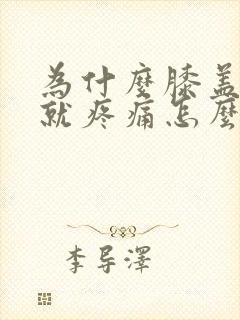 為什麼膝盖
就疼痛怎麼
李导澤